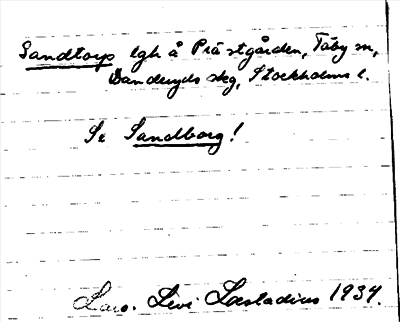 Sandtorp lgh å Prästgården, Täby sn,
Danderyds skg, Stockholms l.
Se Sandborg!
Lars. Levi Læstadius 1937.